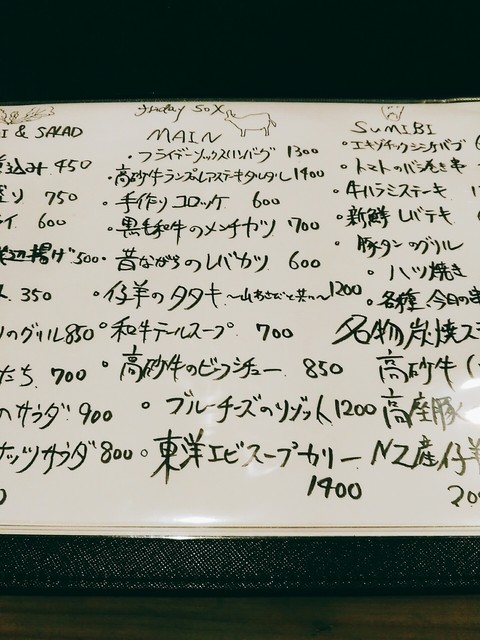 friday sox
I & SALAD
込み 450
り 750
イ 600
辺揚げ 500
350
のグリル 850
たち 700
のサラダ 900
ナッツサラダ 800
MAIN
・フライデーソックスハンバーグ 1300
・高砂牛ランプレアステーキタリタレ 1400
・手作りコロッケ 600
・黒毛和牛のメンチカツ 700
・昔ながらのレバカツ 600
・仔羊のタタキ 〜山わさびと共に〜 1200
・和牛テールスープ 700
・高砂牛のビーフシチュー 850
・ブルーチーズのリゾット 1200
・東洋エビスープカリー
1400
SUMIBI
・エキゾチックシシケバブ
・トマトのバラ巻き串
・牛ハラミステーキ
・新鮮レバテキ
・豚タンのグリル
・ハツ焼き
・各種、今日の
名物炭焼ス
高砂牛
高座豚
NZ産仔羊